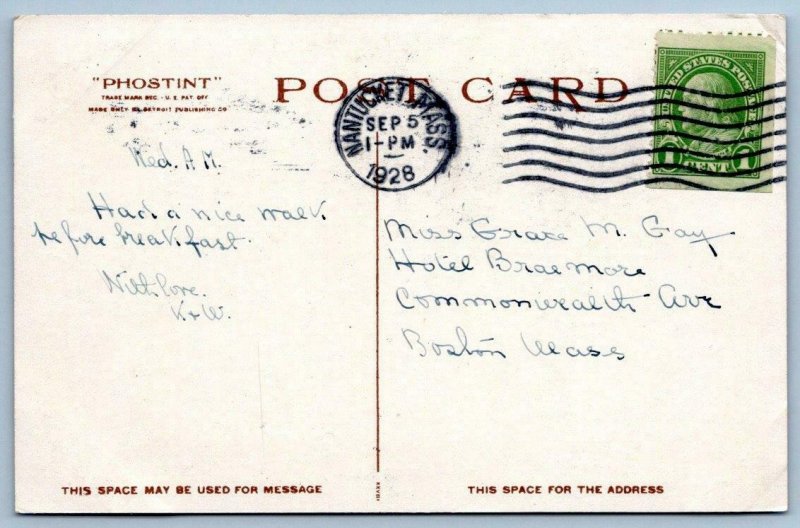 "PHOSTINT"
TRADE MARK REG. - U.S. PAT. OFF.
MADE ONLY BY DETROIT PUBLISHING CO
POST CARD
NANTUCKET, MASS.
SEP 5
1-PM
1928
UNITED STATES POSTAGE
1 CENT 1
Wed. A.M.
Had a nice walk
before breakfast.
With love.
K & W.
Miss Grace M. Gay
Hotel Braemore
Commonwealth Ave
Boston Mass
THIS SPACE MAY BE USED FOR MESSAGE
THIS SPACE FOR THE ADDRESS